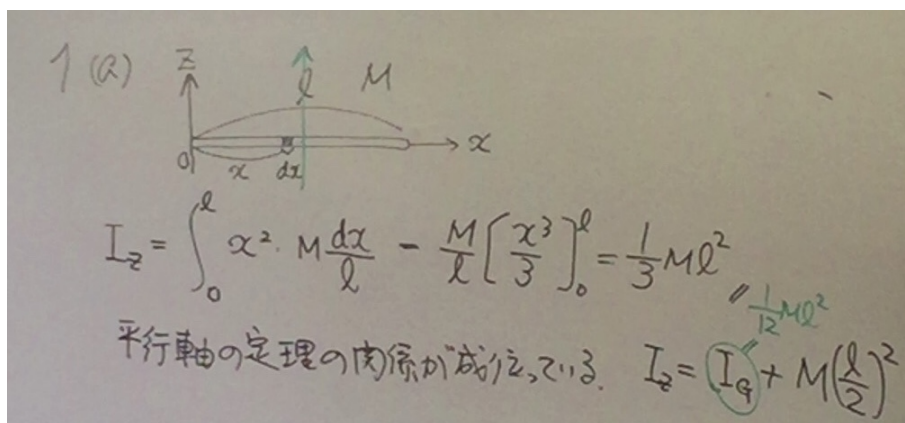 1 (a)
z
l M
O x dx x
I_z = ∫_0^l x² · M dx/l - M/l [x³/3]_0^l = 1/3 Ml²
1/12 Ml²
平行軸の定理の関係が成り立っている. I_z = I_G + M(l/2)²